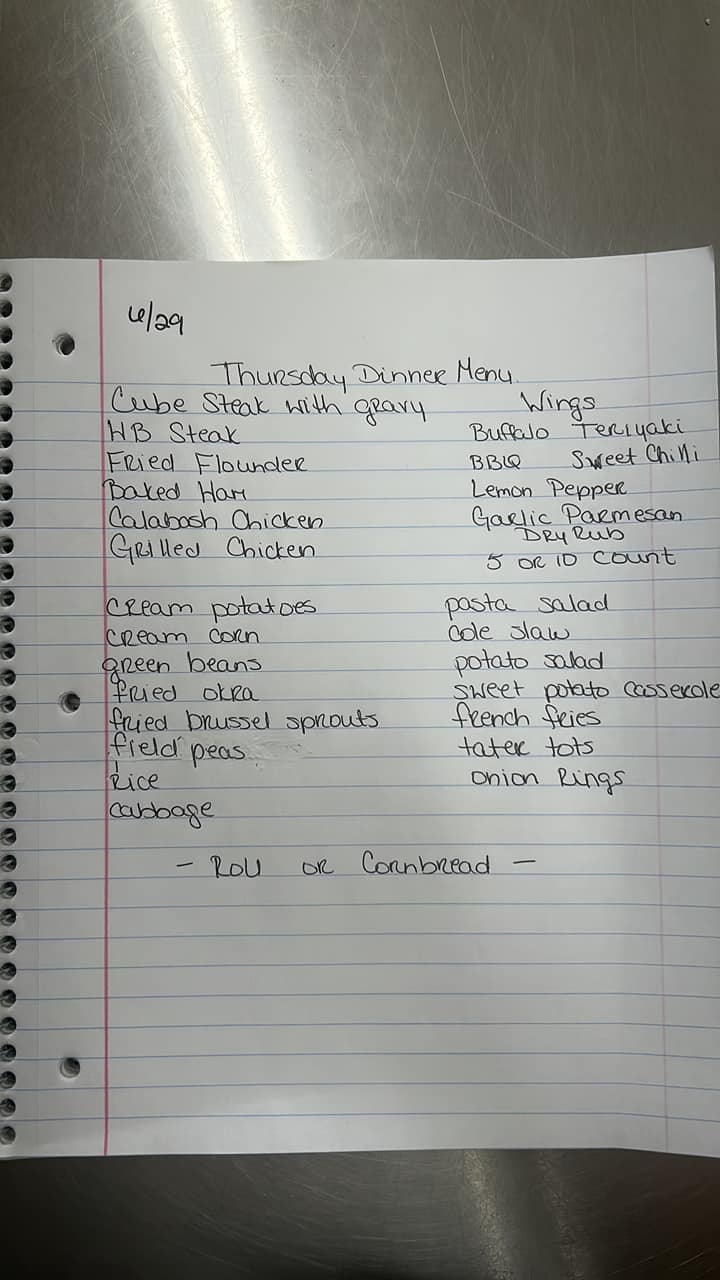 6/29
Thursday Dinner Menu
Cube Steak with gravy
HB Steak
Fried Flounder
Baked Ham
Calabash Chicken
Grilled Chicken
Wings
Buffalo Teriyaki
BBQ Sweet Chilli
Lemon Pepper
Garlic Parmesan
Dry Rub
5 or 10 count
cream potatoes
cream corn
green beans
fried okra
fried brussel sprouts
field peas
Rice
cabbage
pasta salad
cole slaw
potato salad
sweet potato casserole
french fries
tater tots
onion rings
- Roll or Cornbread -